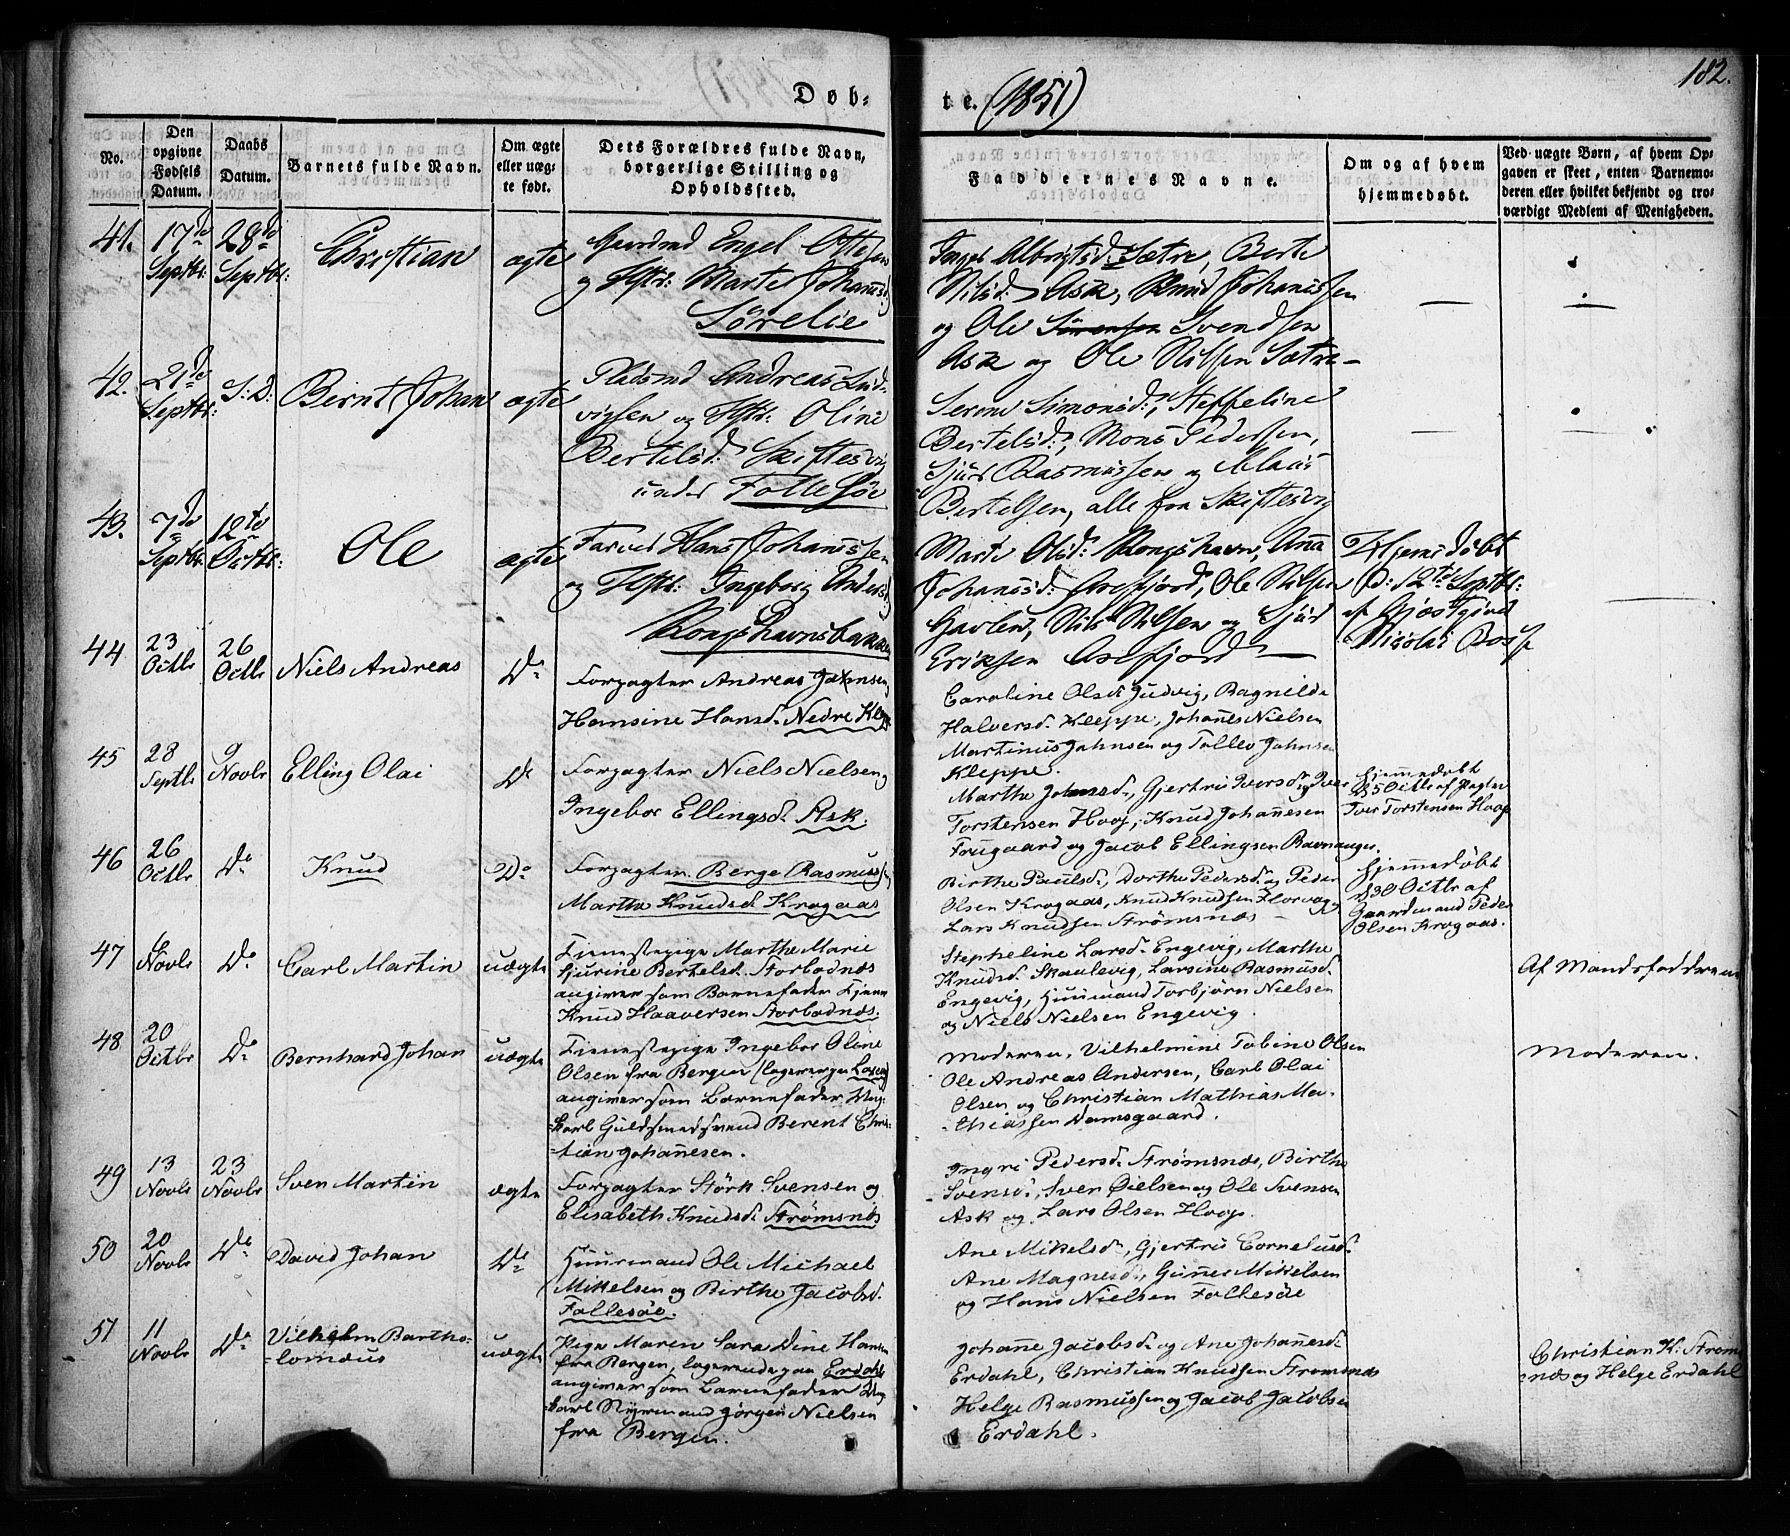 182.
Døb- te. (1851)
No.
Den opgivne Fødsels Datum.
Daabs Datum.
Barnets fulde Navn.
Om ægte eller uægte født.
Dets Forældres fulde Navn, borgerlige Stilling og Opholdssted.
Faddernes Navne.
Om og af hvem hjemmedøbt.
Ved uægte Børn, af hvem Opgaven er skeet, enten Barnemoderen eller hvilket bekjendt og troværdigt Medlem af Menigheden.
41. 17de Septbr: 28de Septbr: Christian ægte
Gaardmd Engel Ottesen
og Hstr: Marte Johannsd
Sørelie
Inger Albrigtsd: Sætre, Berte
Nilsd: Ask, Knud Johanssen
og Ole Sørensen Svendsen
Ask og Ole Nilsen Sætre
42. 21de Septbr: S: D: Bernt Johan ægte
Pladsmd Andreas Lud-
vigsen og Hstr: Oline
Bertilsd: Skiftesvig
under Follesøe
Serine Simonsd:, Steffeline
Bertelsd:, Mons Pedersen,
Sjur Rasmussen og Claus
Bertelsen, alle fra Skiftesvig
43. 7de Septbr: 12te Octbr: Ole ægte
Farver Hans Johanssen
og Hstr: Ingeborg Andersd
Rongshavnsbakken
Marte Olsd: Rongshavn, Anna
Johannsd: Axefjord, Ole Nilsen
Havlen, Nils Nilsen og Sjur
Eriksen Axefjord
Hjemedøbt
d: 12te Septbr:
af Gjæstgiver
Nicolai Ross
44 23 Octbr 26 Octbr Niels Andreas Do
Forpagter Andreas Jahnsen
Hansine Hansd. Nedre Kleppe
Caroline Olsd. Judvig, Ragnilde
Halversd. Kleppe, Johanes Nielsen
Martinus Jahnsen og Tollev Jahnsen
Kleppe.
45 28 Septbr 9 Novbr Elling Olai Do
Forpagter Niels Nielsen og
Ingebor Ellingsd. Ask.
Marthe Johansd., Gjertru Iversd. og Iver
Torstensen Hoop, Knud Johannesen
Frugaard og Jacob Ellingsen Ravnanger.
hjemedøbt
d 5 Octbr af Pagter
Iver Torstensen Hoop
46 26 Octbr Do Knud Do
Forpagter Berge Rasmussen
Marthe Knudsd. Krogaas
Birthe Paulsd., Dorthe Pedersd. og Peder
Olsen Krogaas, Knud Knudsen Florvog
Lars Knudsen Strømsnæs
hjemmedøbt
d 30 Octbr af
Gaardmand Peder
Olsen Krogaas.
47 6 Novbr Do Carl Martin uægte
Tjenestepige Marthe Marie
Sjurine Bertelsd. Storbodnæs
angiver som Barnefader Tjener
Knud Haaversen Storbodnæs.
Stepheline Larsd. Engevig, Marthe
Knudsd. Skaulevig, Larsine Rasmusd.
Engevig, Huusmand Torbjørn Nielsen
og Niels Nielsen Engevig.
Af Mandsfadderne
48 20 Octbr Do Bernhard Johan uægte
Tjenestepige Ingebor Oline
Olsen fra Bergen
angiver som Barnefader Ung-
karl Guldsmedsvend Berent Chris-
tian Johannesen.
Moderen, Vilhelmine Tobine Olsen
Ole Andreas Andersen, Carl Olai
Olsen og Christian Mathias Ma-
thiassen Damsgaard.
Moderen.
49 13 Novbr 23 Novbr Sven Martin ægte
Forpagter Størk Svensen og
Elisabeth Knudsd. Strømsnæs
Ingri Pedersd. Strømsnæs, Birthe
Svensd., Sven Øielsen og Ole Svensen
Ask og Lars Olsen Hoop.
50 20 Novbr Do David Johan Do
Huusmand Ole Michael
Mikkelsen og Birthe Jacobsd.
Follesøe.
Ane Mikelsd., Gjertru Corneliusd.
Ane Magnesd., Gunner Mikelsen
og Hans Nielsen Follesøe
51 11 Novbr Do Vilhelm Bartho-
lomæus uægte
Pige Maren Sara Dine Hansen
fra Bergen, logerende paa Erdahl
angiver som Barnefader Ung-
karl Styrmand Jørgen Nielsen
fra Bergen.
Johanne Jacobsd. og Ane Johannesd.
Erdahl, Christian Knudsen Strømsnæs
Helge Rasmussen og Jacob Jacobsen
Erdahl.
Christian K. Strøms-
næs og Helge Erdahl